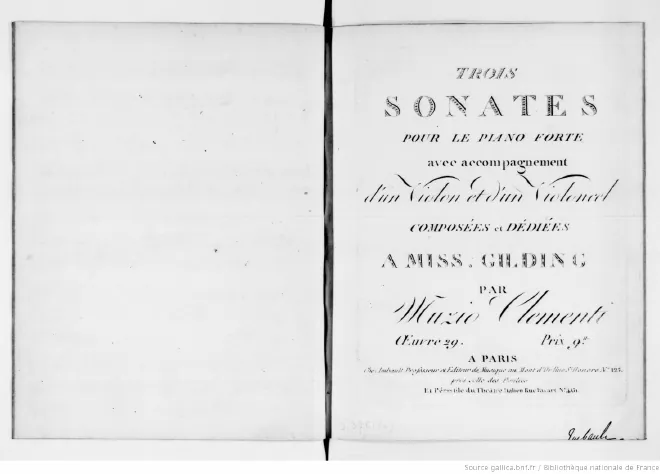 TROIS
SONATES
POUR LE PIANO FORTE
avec accompagnement
d'un Violon et d'un Violoncel
COMPOSÉES et DÉDIÉES
A MISS. GILDING
PAR
Muzio Clementi
Œuvre 29. Prix 9.#
A PARIS
Chez Imbault Professeur et Editeur de Musique au Mont d'Or Rue St Honoré No. 125.
près celle des Poulies
Et Péristile du Théatre Italien Rue Favart No. 461.
Imbault
Source gallica.bnf.fr / Bibliothèque nationale de France